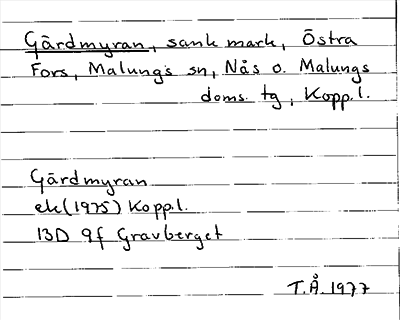 Gärdmyran, sank mark, Östra
Fors, Malungs sn, Nås o. Malungs
doms. tg, Kopp.l.
Gärdmyran
ek (1975) Kopp.l.
13D 9f Gravberget
T.Å. 1977